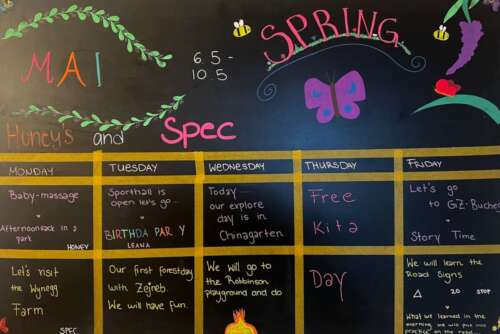 SPRING
MAI
6.5-
10.5
Honey's and Spec
MONDAY
TUESDAY
WEDNESDAY
THURSDAY
FRIDAY
Baby-massage
Afternoonsack in a
park
HONEY
Sporthall is
open let's go
BIRTHDA PAR Y
LEANA
Today
our explore
day is in
Chinagarten
Free
Kita
Let's go
to GZ:Bucheg
Story Time
Let's visit
the Wynegg
Farm
SPEC
Our first forestday
with Zejreb.
We will have fun.
We will go to
the Robbinson
playground and do
Day
We will learn the
Road Signs
20 STOP
What we learned in the
morning we will put into
practice on the road